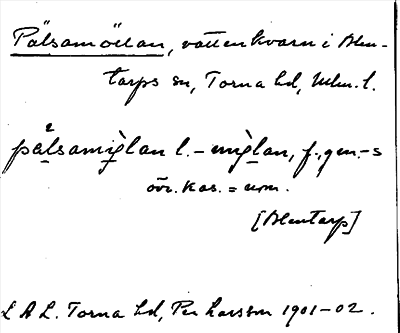 Pälsamöllan, vattenkvarn i Blen-
tarps sn, Torna hd, Mlm. l.
pä²lsamìg̀lan l. -mìg̀lan, f., gen. -s
övr. kas. = nom.
[Blentarp]
L A L. Torna hd, Per Larsson 1901-02.